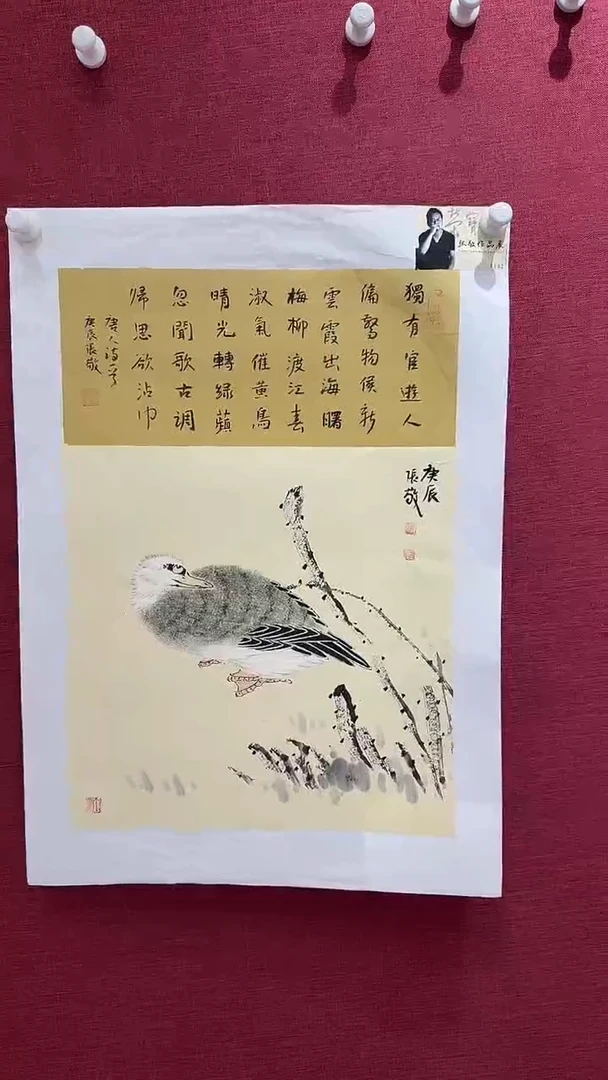 獨有宦遊人
偏驚物候新
雲霞出海曙
梅柳渡江春
淑氣催黃鳥
晴光轉綠蘋
忽聞歌古調
歸思欲沾巾
唐人詩一首
庚辰張敬
庚辰
張敬
作品展